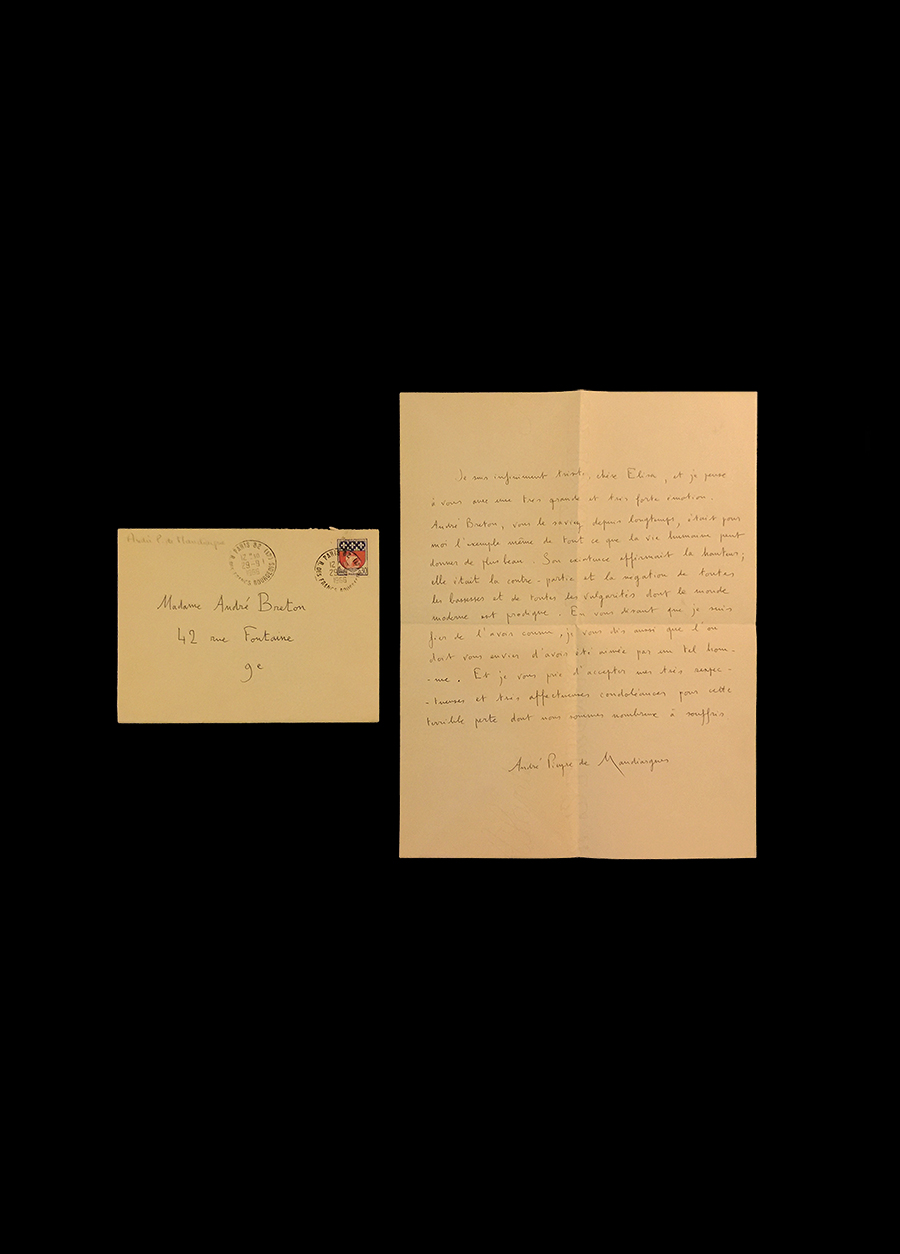 André P. de Mandiargues
PARIS
29-9
1966
PARIS
29
1966
Madame André Breton
42 rue Fontaine
9e
Je suis infiniment triste, chère Elisa, et je pense
à vous avec une très grande et très forte émotion.
André Breton, vous le saviez depuis longtemps, était pour
moi l'exemple même de tout ce que la vie humaine peut
donner de plus beau. Son existence affirmait la hauteur;
elle était la contre-partie et la négation de toutes
les bassesses et de toutes les vulgarités dont le monde
moderne est prodigue. En vous disant que je suis
fier de l'avoir connu, je vous dis aussi que l'on
doit vous envier d'avoir été aimée par un tel hom-
-me. Et je vous prie d'accepter mes très respec-
-tueuses et très affectueuses condoléances pour cette
terrible perte dont nous sommes nombreux à souffrir
André Pieyre de Mandiargues